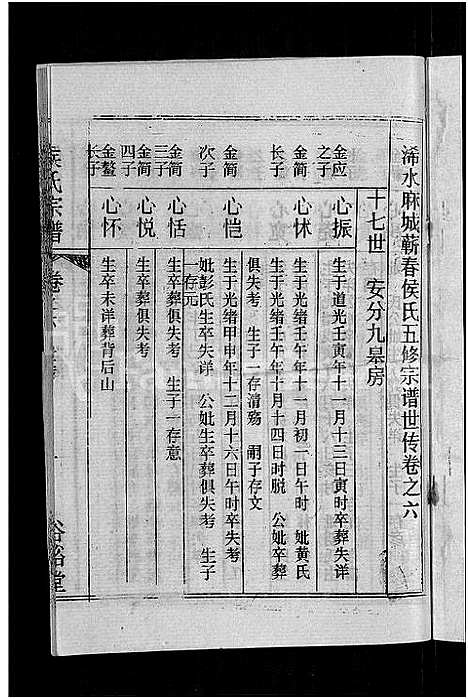 浠水麻城蕲春侯氏五修宗谱世传卷之六
十七世 安分九皋房
金应之子 心振 生于道光壬寅年十一月十三日寅时卒葬失详
金简长子 心怵 生于光绪壬午年十一月初一日午时 妣黄氏
生于光绪壬午年十月十四日时脱 公妣卒葬
俱失考 生子一存清殇 嗣子存文
金简次子 心恺 生于光绪甲申年十二月十六日午时卒失考
妣彭氏生卒失详 公妣生卒葬俱失考 生子
一存元
金简三子 心恬 生卒葬俱失考 生子一存意
金简四子 心悦 生卒葬俱失考
金鳌长子 心怀 生卒未详葬背后山
侯氏宗谱